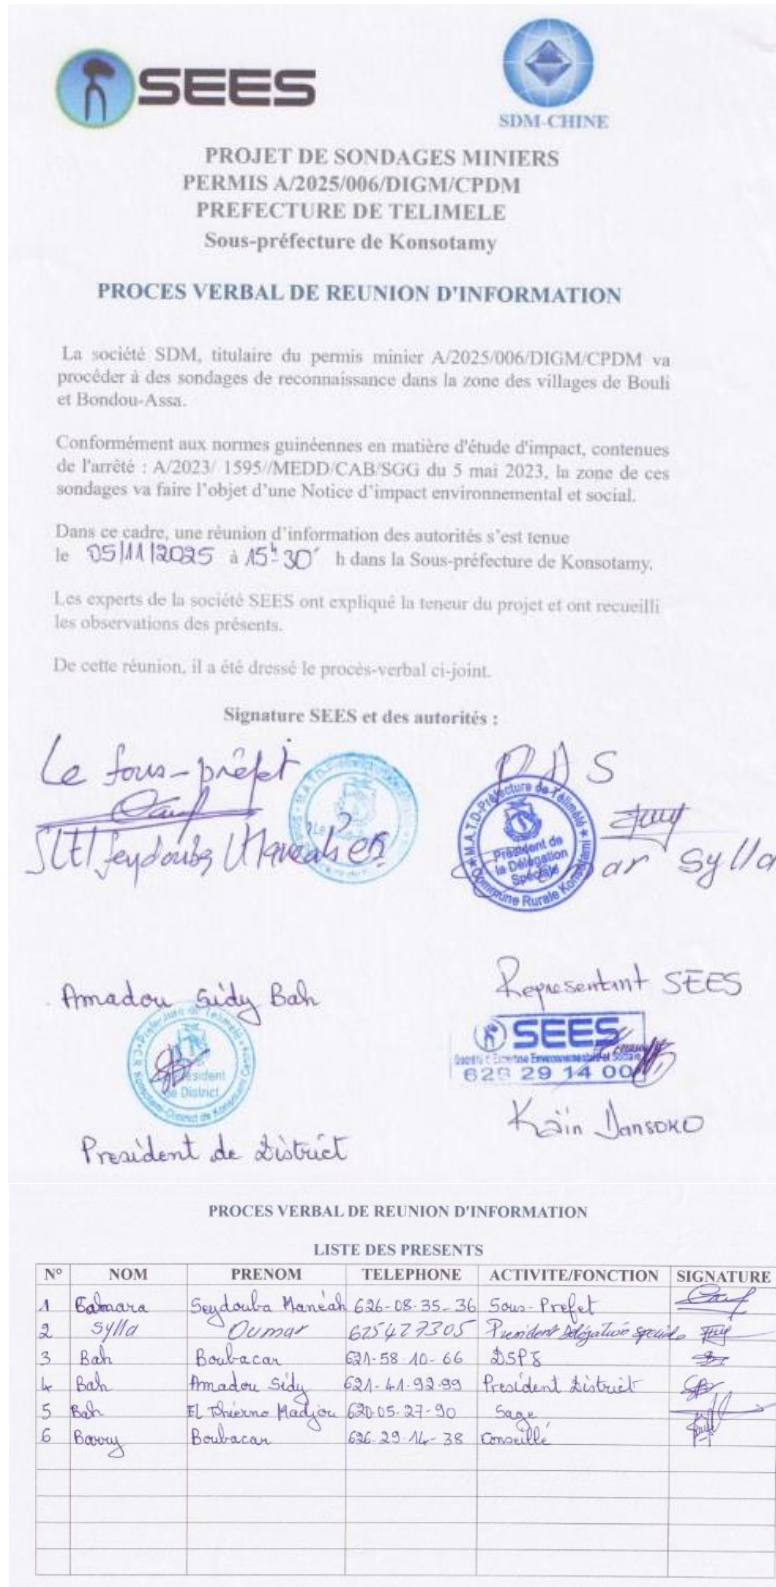 SEES
SDM-CHINE
PROJET DE SONDAGES MINIERS
PERMIS A/2025/006/DIGM/CPDM
PREFECTURE DE TELIMELE
Sous-préfecture de Konsotamy
PROCES VERBAL DE REUNION D'INFORMATION
La société SDM, titulaire du permis minier A/2025/006/DIGM/CPDM va
procéder à des sondages de reconnaissance dans la zone des villages de Bouli
et Bondou-Assa.
Conformément aux normes guinéennes en matière d'étude d'impact, contenues
de l'arrêté : A/2023/ 1595//MEDD/CAB/SGG du 5 mai 2023, la zone de ces
sondages va faire l'objet d'une Notice d'impact environnemental et social.
Dans ce cadre, une réunion d'information des autorités s'est tenue
le 05/11/2025 à 15h 30' h dans la Sous-préfecture de Konsotamy.
Les experts de la société SEES ont expliqué la teneur du projet et ont recueilli
les observations des présents.
De cette réunion, il a été dressé le procès-verbal ci-joint.
Signature SEES et des autorités :
Le Sous-préfet
PDS
M.A.T.D-Préfecture de Télimélé
Président de
la Délégation
Spéciale
Commune Rurale Konsotami
Seydouba
Sylla
Amadou Sidy Bah
Président
de District
President de District
Representant SEES
SEES
628 29 14 00
Kaïn Dansoko
PROCES VERBAL DE REUNION D'INFORMATION
LISTE DES PRESENTS
N° NOM PRENOM TELEPHONE ACTIVITE/FONCTION SIGNATURE
1 Camara Seydouba Manéah 626-08-35-36 Sous-Prefet
2 Sylla Oumar 625427305 President Délégation speciale
3 Bah Boubacar 621-58-10-66
4 Bah Amadou Sidy 621-41-92-99 President District
5 Bah EL Thierno Madjou 620-05-27-90 Sage
6 Barry Boubacar 626-29-14-38 Conseillé